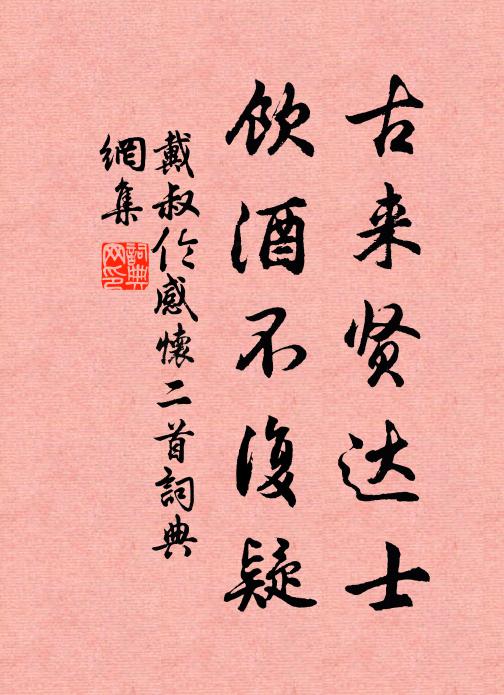 古来贤达士
饮酒不复疑
戴叔伦感懷二首詞典
網集
詞典
网印